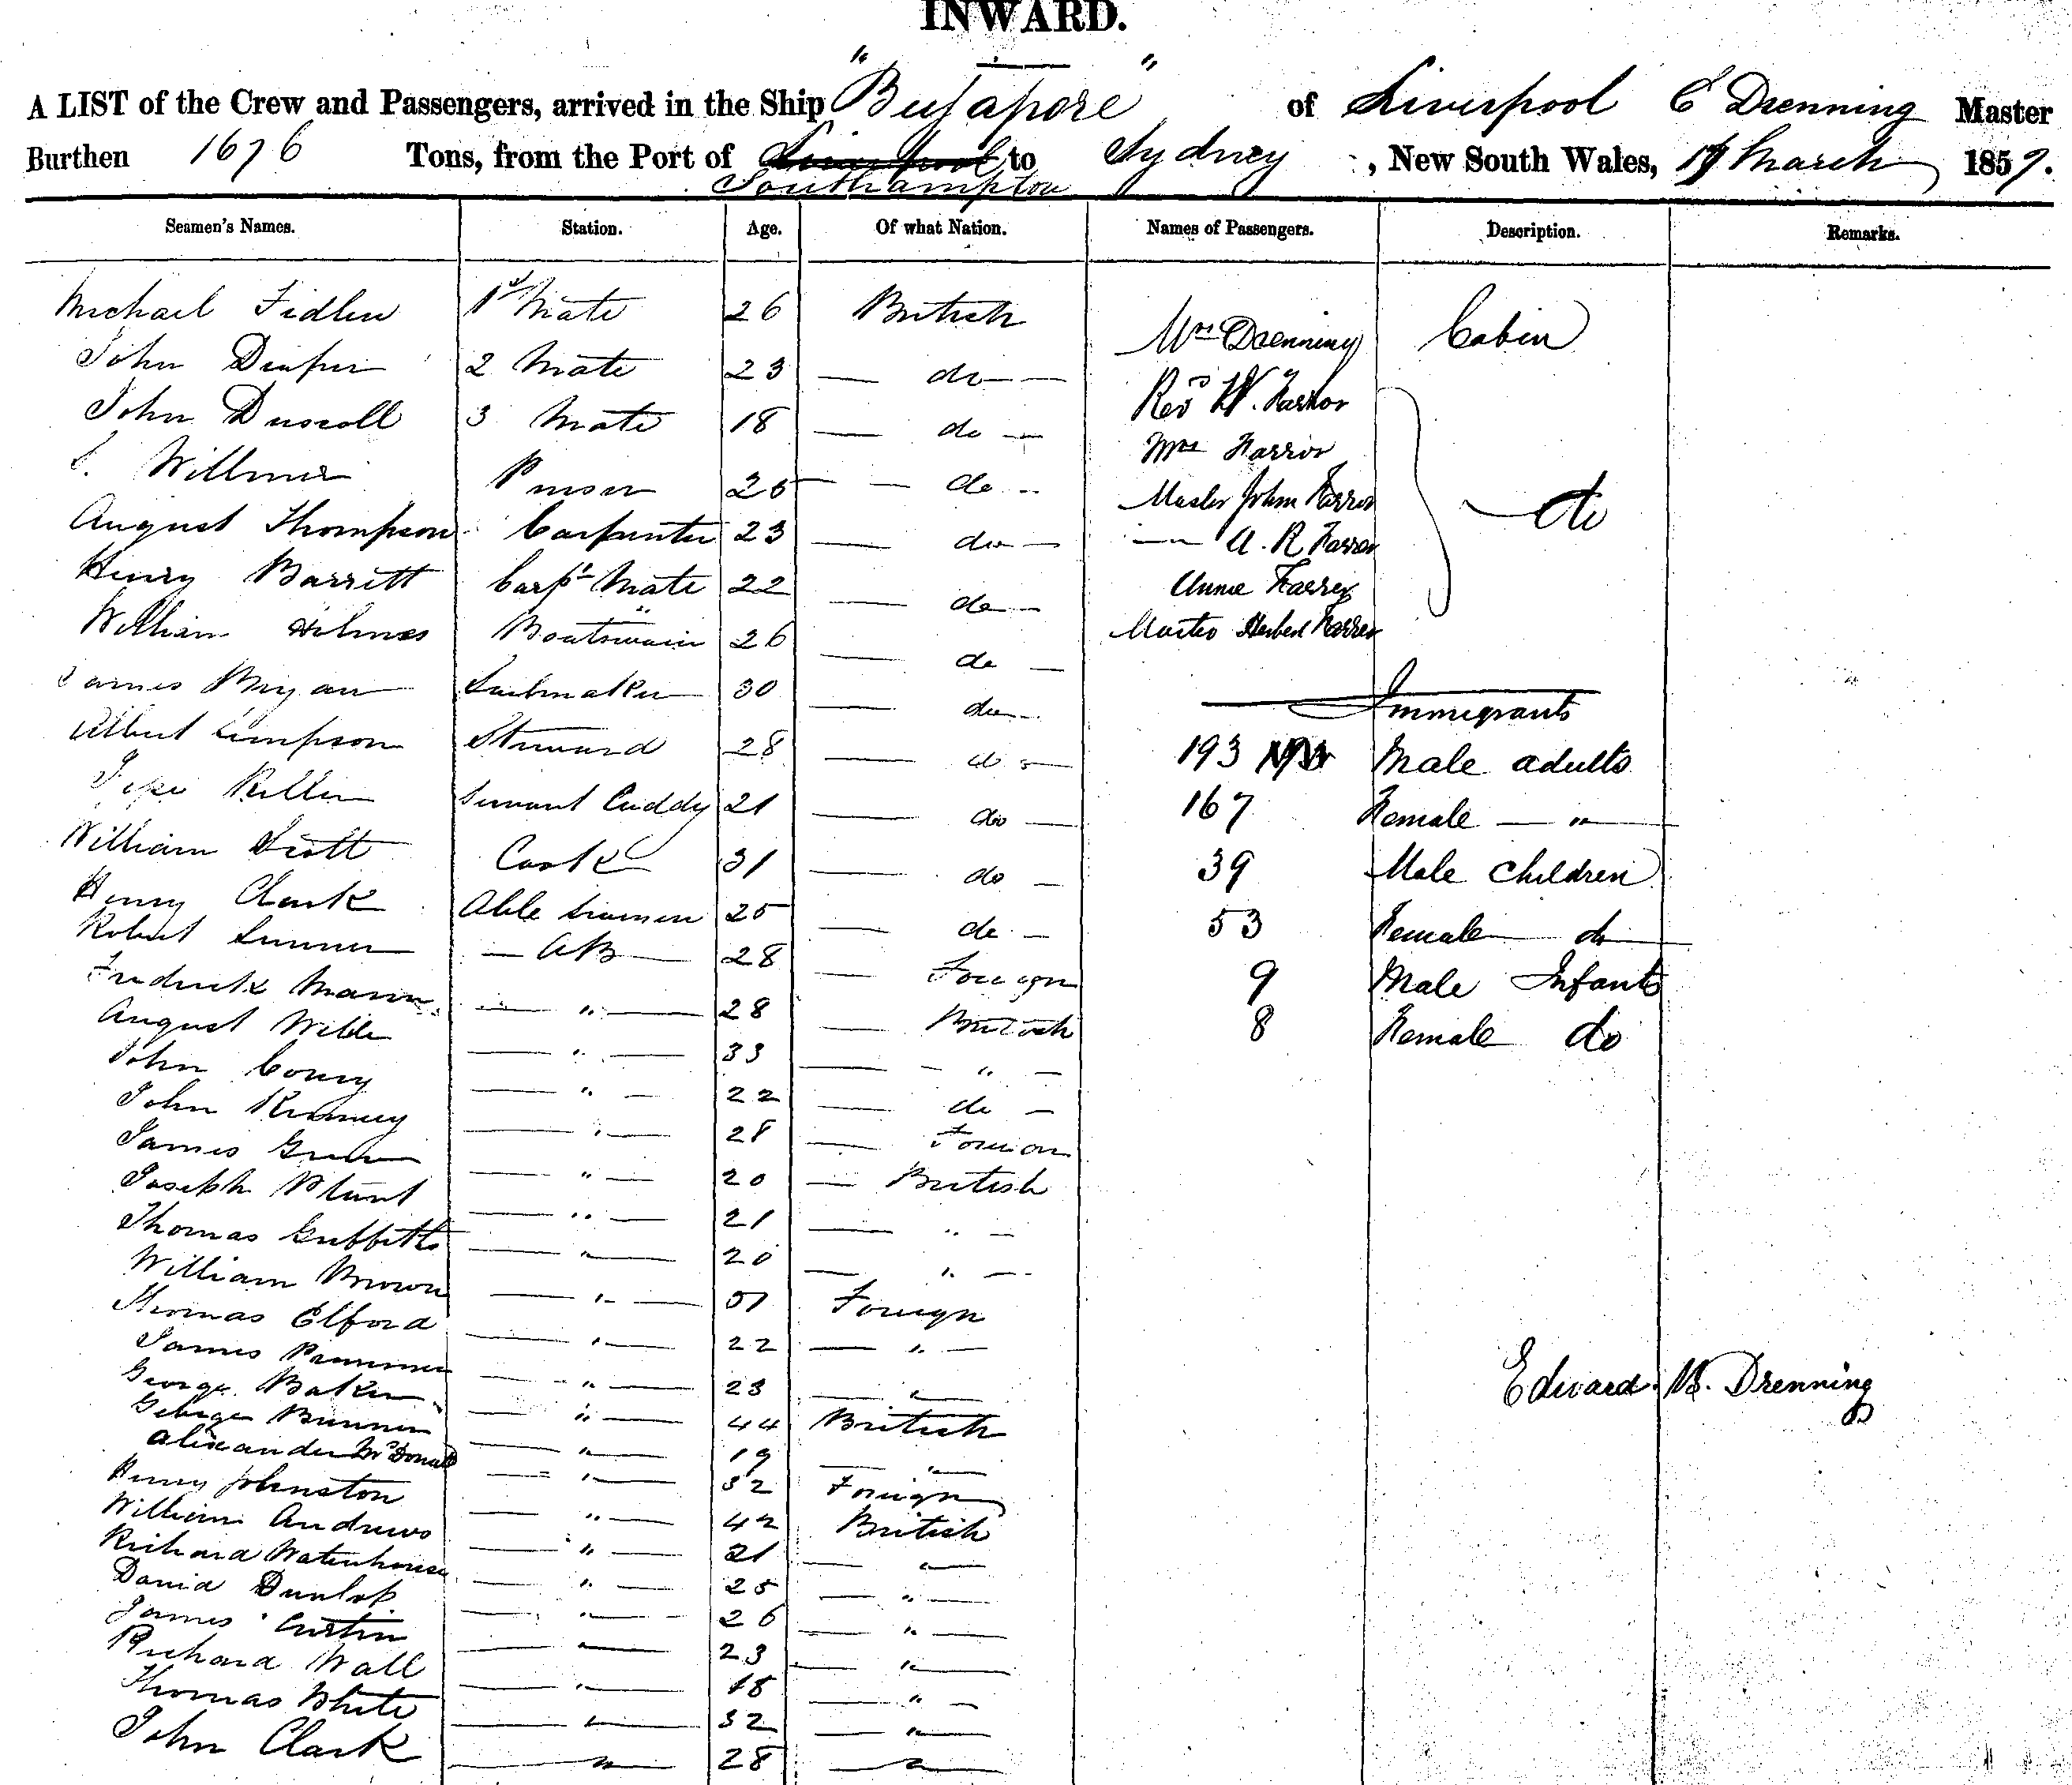 INWARD.
A LIST of the Crew and Passengers, arrived in the Ship "Bejapore" of Liverpool E Drenning Master
Burthen 1676 Tons, from the Port of Liverpool to Sydney, New South Wales, March 1857.
Southampton
Seamen's Names. Station. Age. Of what Nation. Names of Passengers. Description. Remarks.
Michael Fidler 1st Mate 26 British Mrs Drenning Cabin
John 2 Mate 23 do
John Driscoll 3 Mate 18 do Revd W.
Willmer Purser do Mrs
August Thompson Carpenter 23 do Master John do
Henry Barrett Carpr Mate 22 do A. R.
William Holmes Boatswain 26 do Annie
James Bryan Sailmaker 30 do Master Herbert
Albert Simpson Steward 28 do Immigrants
Servant Cuddy 21 do 193 Male adults
William Scott Cook 31 do 167 Female "
Henry Clark Able Seamen 25 do 39 Male Children
Robert AB 28 Foreign 53 Female do
Frederick Mann " 28 British 9 Male Infants
August Wilde " 33 " 8 Female do
John " 22 do
John " 28 Foreign
James Green " 20 British
Joseph Blunt " 21 "
Thomas Griffiths " 20 "
William Brown " Foreign
Thomas Elford " 22 "
James " 23 "
George Baker " 44 British
George " 19 "
Alexander McDonald " 32 Foreign
Henry Johnston " 42 British
William Andrews " 21 "
Richard Waterhouse " 25 "
David Dunlop " 26 "
James Curtin " 23 "
Richard Wall " 18 "
Thomas White " 32 "
John Clark " 28 "
Edward Drenning